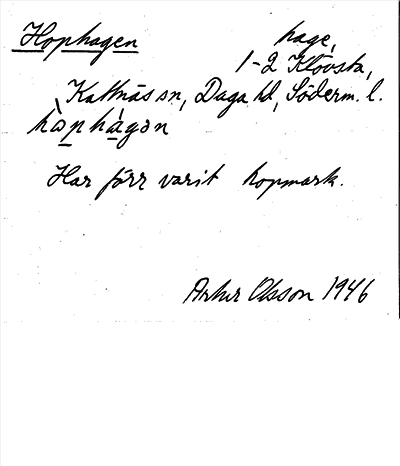 Hophagen hage,
1-2 Klövsta,
Kattnäs sn, Daga hd, Söderm. l.
hòphágən
Har förr varit hopmark.
Artur Olsson 1946